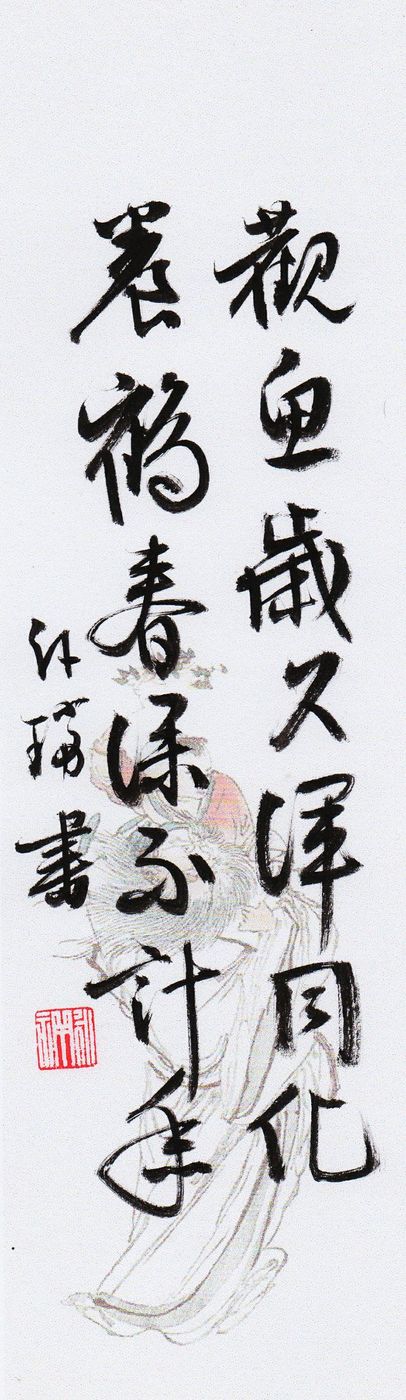 觀魚歲久渾同化
養鶴春深不計年
許瑞書